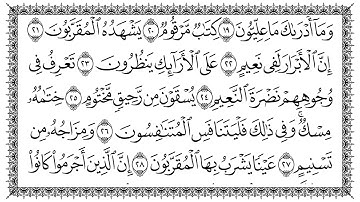 وَمَآ أَدْرَىٰكَ مَا عِلِّيُّونَ ١٩ كِتَٰبٌ مَّرْقُومٌ ٢٠ يَشْهَدُهُ ٱلْمُقَرَّبُونَ ٢١
إِنَّ ٱلْأَبْرَارَ لَفِى نَعِيمٍ ٢٢ عَلَى ٱلْأَرَآئِكِ يَنظُرُونَ ٢٣ تَعْرِفُ فِى
وُجُوهِهِمْ نَضْرَةَ ٱلنَّعِيمِ ٢٤ يُسْقَوْنَ مِن رَّحِيقٍ مَّخْتُومٍ ٢٥ خِتَٰمُهُۥ
مِسْكٌ ۚ وَفِى ذَٰلِكَ فَلْيَتَنَافَسِ ٱلْمُتَنَٰفِسُونَ ٢٦ وَمِزَاجُهُۥ مِن
تَسْنِيمٍ ٢٧ عَيْنًا يَشْرَبُ بِهَا ٱلْمُقَرَّبُونَ ٢٨ إِنَّ ٱلَّذِينَ أَجْرَمُوا۟ كَانُوا۟